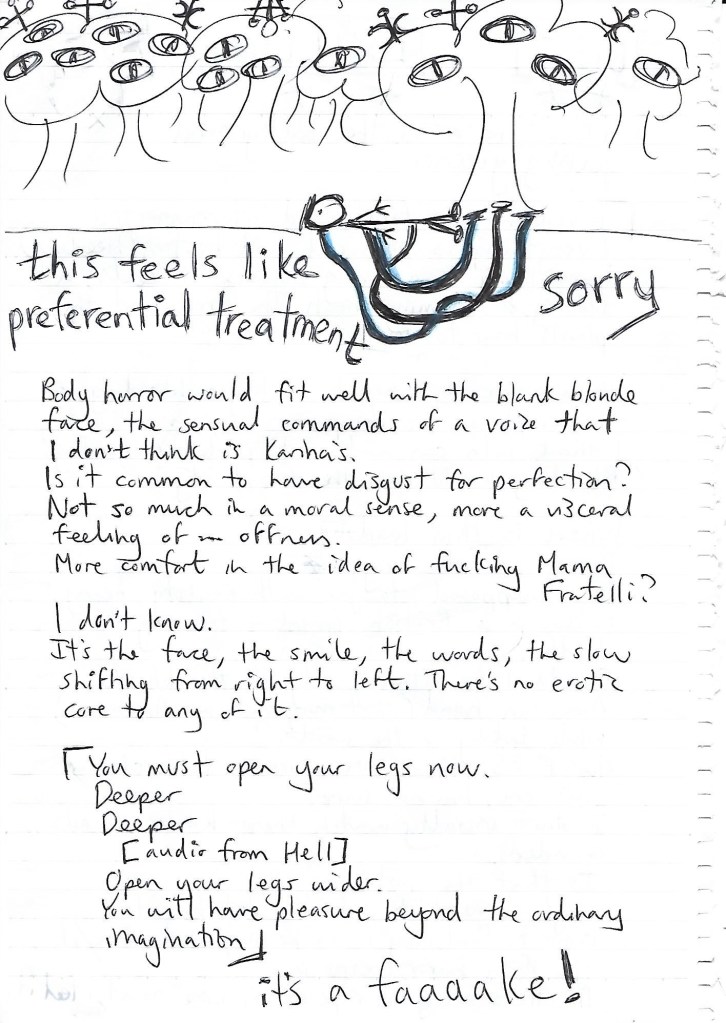 this feels like
preferential treatment
sorry
Body horror would fit well with the blank blonde
face, the sensual commands of a voice that
I don't think is Kanha's.
Is it common to have disgust for perfection?
Not so much in a moral sense, more a visceral
feeling of offness.
More comfort in the idea of fucking Mama
Fratelli?
I don't know.
It's the face, the smile, the words, the slow
shifting from right to left. There's no erotic
core to any of it.
「You must open your legs now.
Deeper
Deeper
[audio from Hell]
Open your legs wider.
You will have pleasure beyond the ordinary
imagination」
it's a faaaake!